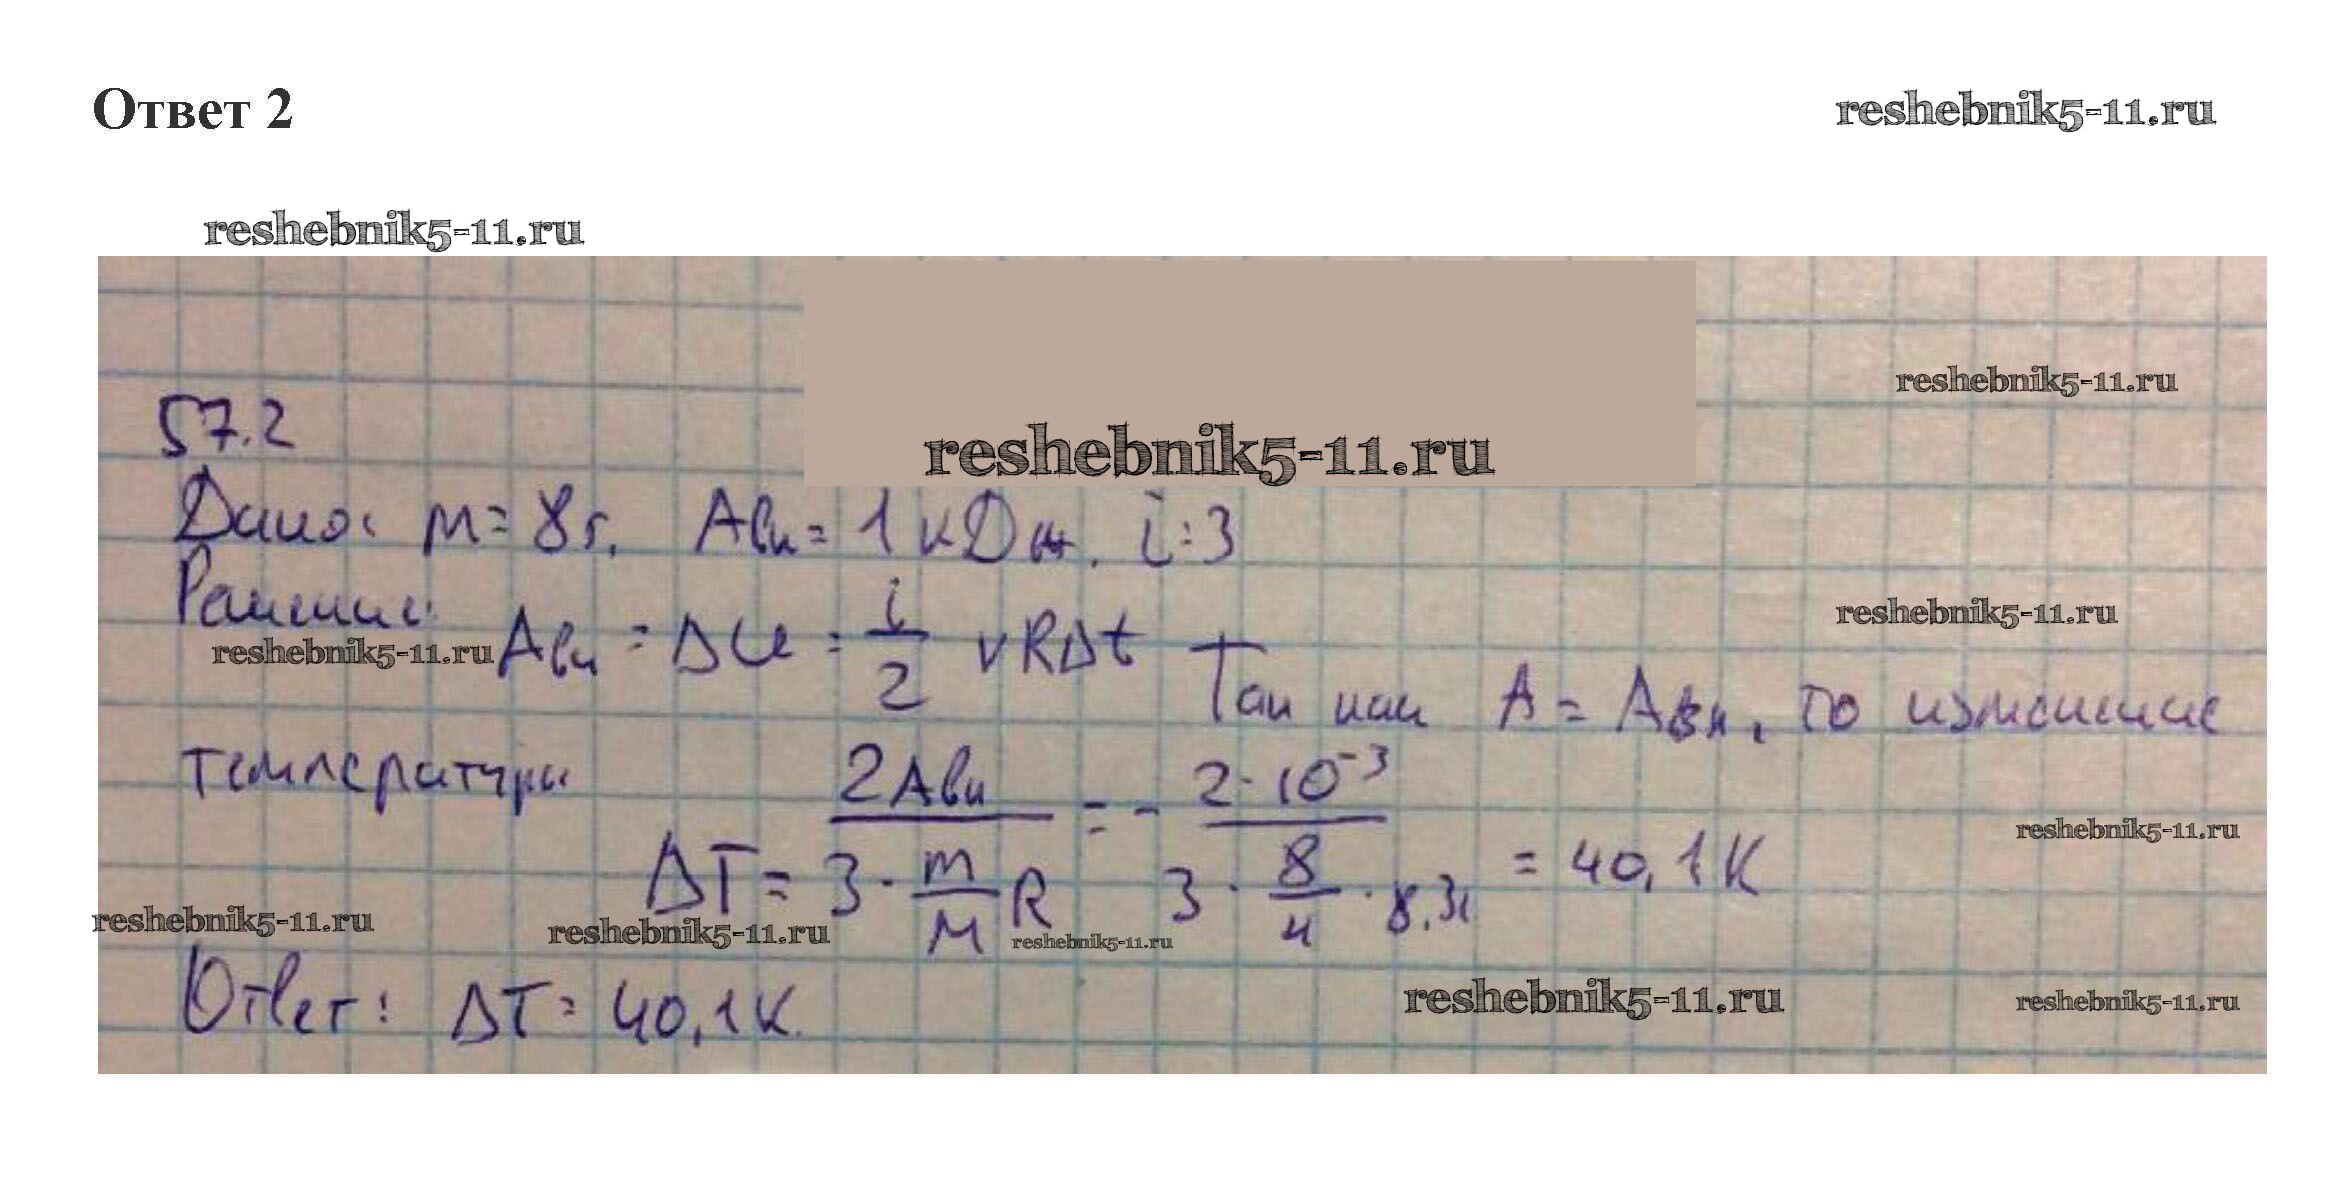 Ответ 2
reshebnik5-11.ru
reshebnik5-11.ru
reshebnik5-11.ru
57.2
reshebnik5-11.ru
Дано: m = 8 г. Aвн = 1 кДж. i = 3
Решение:
reshebnik5-11.ru
reshebnik5-11.ru Aвн = ΔU = i/2 νRΔt Так как A = Aвн, то изменение
температуры
ΔT = 2Aвн / (3 · m/M R) = - 2·10⁻³ / (3 · 8/4 · 8.31) = 40,1 К
reshebnik5-11.ru
reshebnik5-11.ru
reshebnik5-11.ru
reshebnik5-11.ru
Ответ: ΔT = 40,1 К.
reshebnik5-11.ru
reshebnik5-11.ru